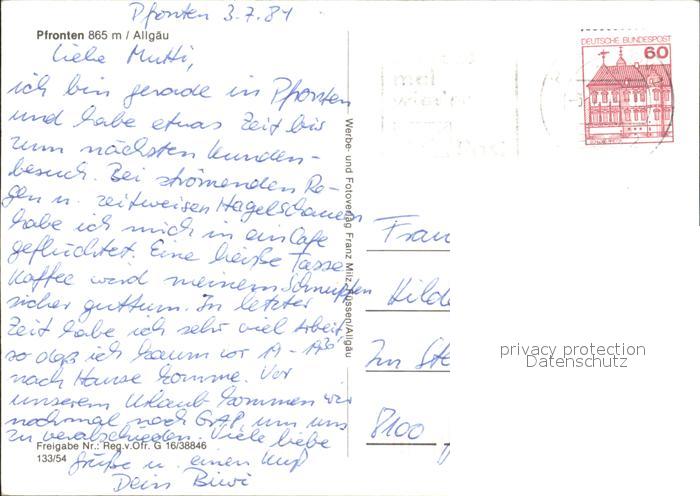 Pfronten 3.7.84
Pfronten 865 m / Allgäu
Liebe Mutti,
ich bin gerade in Pfronten
und habe etwas Zeit bis
zum nächsten Kunden-
besuch. Bei strömenden Re-
gen u. zeitweisen Hagelschauern
habe ich mich in ein Cafe
geflüchtet. Eine heiße Tasse
Kaffee wird meinem Schnupfen
sicher guttun. In letzter
Zeit habe ich sehr viel Arbeit,
so daß ich kaum vor 19 - 19³⁰
nach Hause komme. Vor
unserem Urlaub kommen wir
nochmal nach GAP, um uns
zu verabschieden. Viele liebe
Grüße u. einen Kuß
Dein
Freigabe Nr.: Reg.v.Ofr. G 16/38846
133/54
Werbe- und Fotoverlag Franz Milz, Füssen/Allgäu
DEUTSCHE BUNDESPOST
60
mal
wieder
Frau
Hilde
Im
8100
privacy protection
Datenschutz